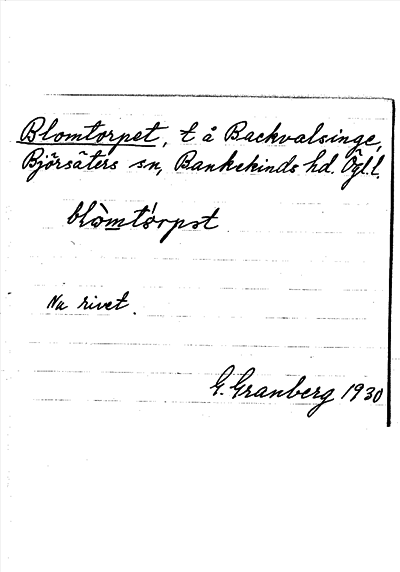 Blomtorpet, t å Backvalsinge,
Björsäters sn, Bankekinds hd. Ögl. l.
blòmtórpət
Nu rivet.
G. Granberg 1930